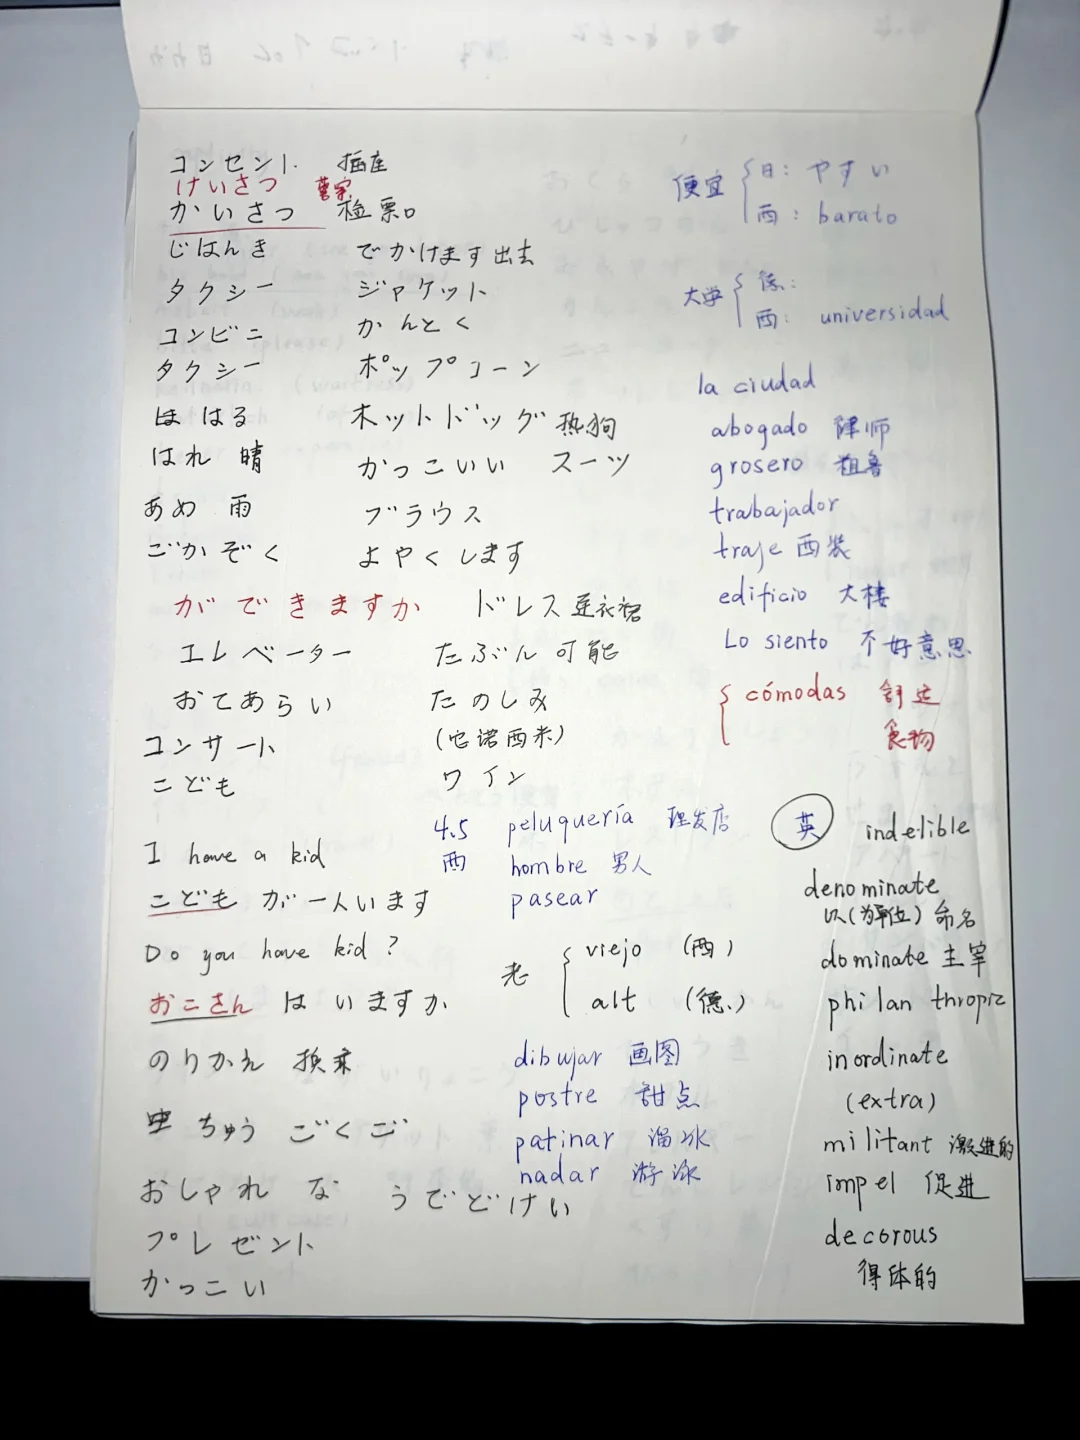 コンセント 插座
けいさつ 警察
かいさつ 检票。
じはんき
タクシー
コンビニ
タクシー
ほ はる
はれ 晴
あめ 雨
ごかぞく
ができますか
エレベーター
おてあらい
コンサート
こども
I have a kid
こども が一人います
Do you have kid?
おこさん は いますか
のりかえ 换乘
虫 ちゅう ごくご
おしゃれ な
うでどけい
プレゼント
かっこい
でかけます 出去
ジャケット
かんとく
ポップコーン
ホットドッグ 热狗
かっこいい スーツ
ブラウス
よやくします
ドレス 连衣裙
たぶん 可能
たのしみ
(它诺西米)
ワイン
4.5 peluquería 理发店
西 hombre 男人
pasear
老 viejo (西)
alt (德.)
dibujar 画图
postre 甜点
patinar 溜冰
nadar 游泳
便宜 日: やすい
西: barato
大学 德:
西: universidad
la ciudad
abogado 律师
grosero 粗鲁
trabajador
traje 西装
edificio 大楼
Lo siento 不好意思
cómodas 舒适
食物
英 indelible
denominate
以(为单位) 命名
dominate 主宰
philanthropic
inordinate
(extra)
militant 激进的
impel 促进
decorous
得体的